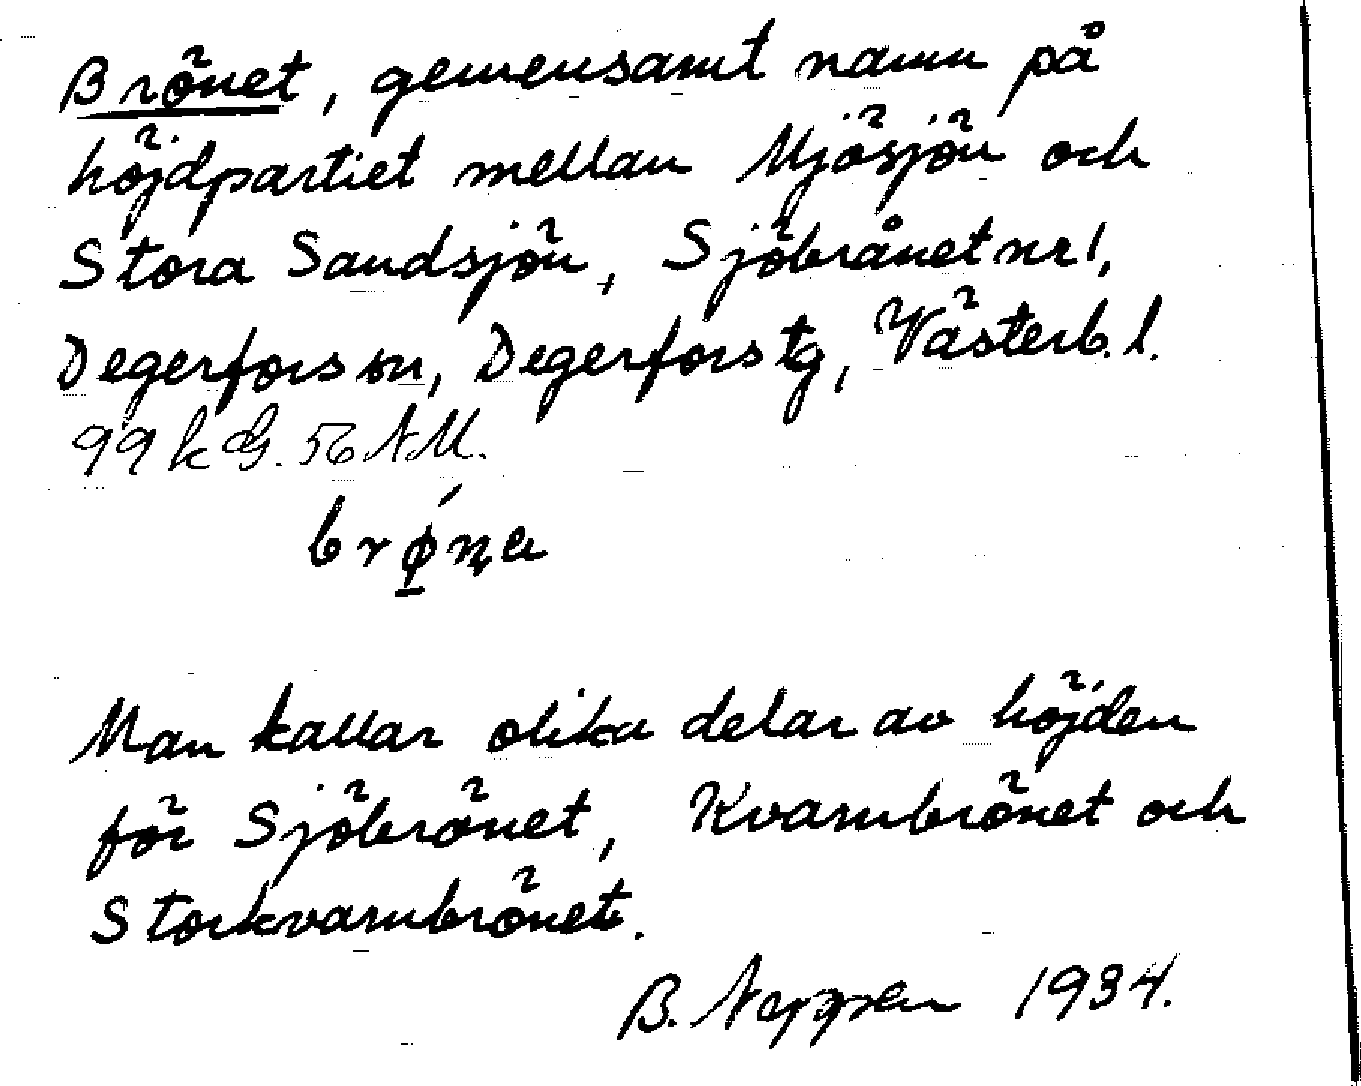 Brönet, gemensamt namn på
höjdpartiet mellan Mjösjön och
Stora Sandsjön, Sjöbrånet nr 1,
Degerfors sn, Degerfors tg, Västerb. l.
99 k G. 56 NM.
Man kallar olika delar av höjden
för Sjöbrönet, Kvarnbrönet och
Storkvarnbrönet.
B. 1934.